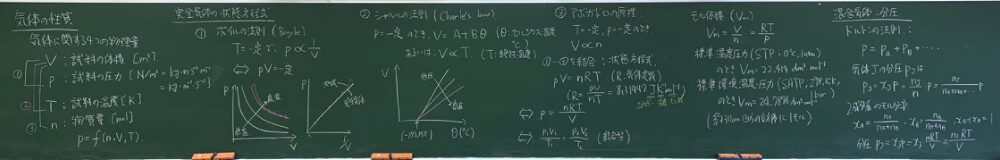 気体の性質
気体に関する4つの物理量
V : 試料の体積 [m³]
p : 試料の圧力 [N/m² = kg·m·s⁻²·m⁻²
= kg·m⁻¹·s⁻²]
T : 試料の温度 [K]
n : 物質量 [mol]
p = f(n, V, T).
完全気体の状態方程式
① ボイルの法則 (Boyle)
T=一定で, p ∝ 1/V
⇔ pV=一定
p
V
p
1/V
② シャルルの法則 (Charles's law)
p=一定のとき, V = A+Bθ (θ:セルシウス温度
℃)
あるいは, V ∝ T (T:絶対温度)
V
θ(℃)
③ アボガドロの原理
T=一定, p=一定のとき,
V ∝ n
①-③を結合 : 状態方程式
pV = nRT (R:気体定数)
(R = pV/nT = 8.31447 JK⁻¹mol⁻¹)
⇔ p = nRT/V
⇔ p₁V₁/T₁ = p₂V₂/T₂
モル体積 (Vm)
Vm = V/n = RT/p
標準温度圧力 (STP : 0℃, 1atm)
のとき Vm = 22.414 dm³ mol⁻¹
標準環境温度・圧力 (SATP, 298.15K,
1bar)
のとき Vm = 24.789 dm³mol⁻¹
混合気体・分圧
ドルトンの法則 :
p = pA + pB + ····
気体Jの分圧 pJ は
pJ = xJ p = nJ/n p = nJ/(nA+nB+··) p
2成分系のモル分率
xA = nA/(nA+nB), xB = nB/(nA+nB), xA+xB = 1
分圧 pJ = xJ p = xJ nRT/V = nJRT/V